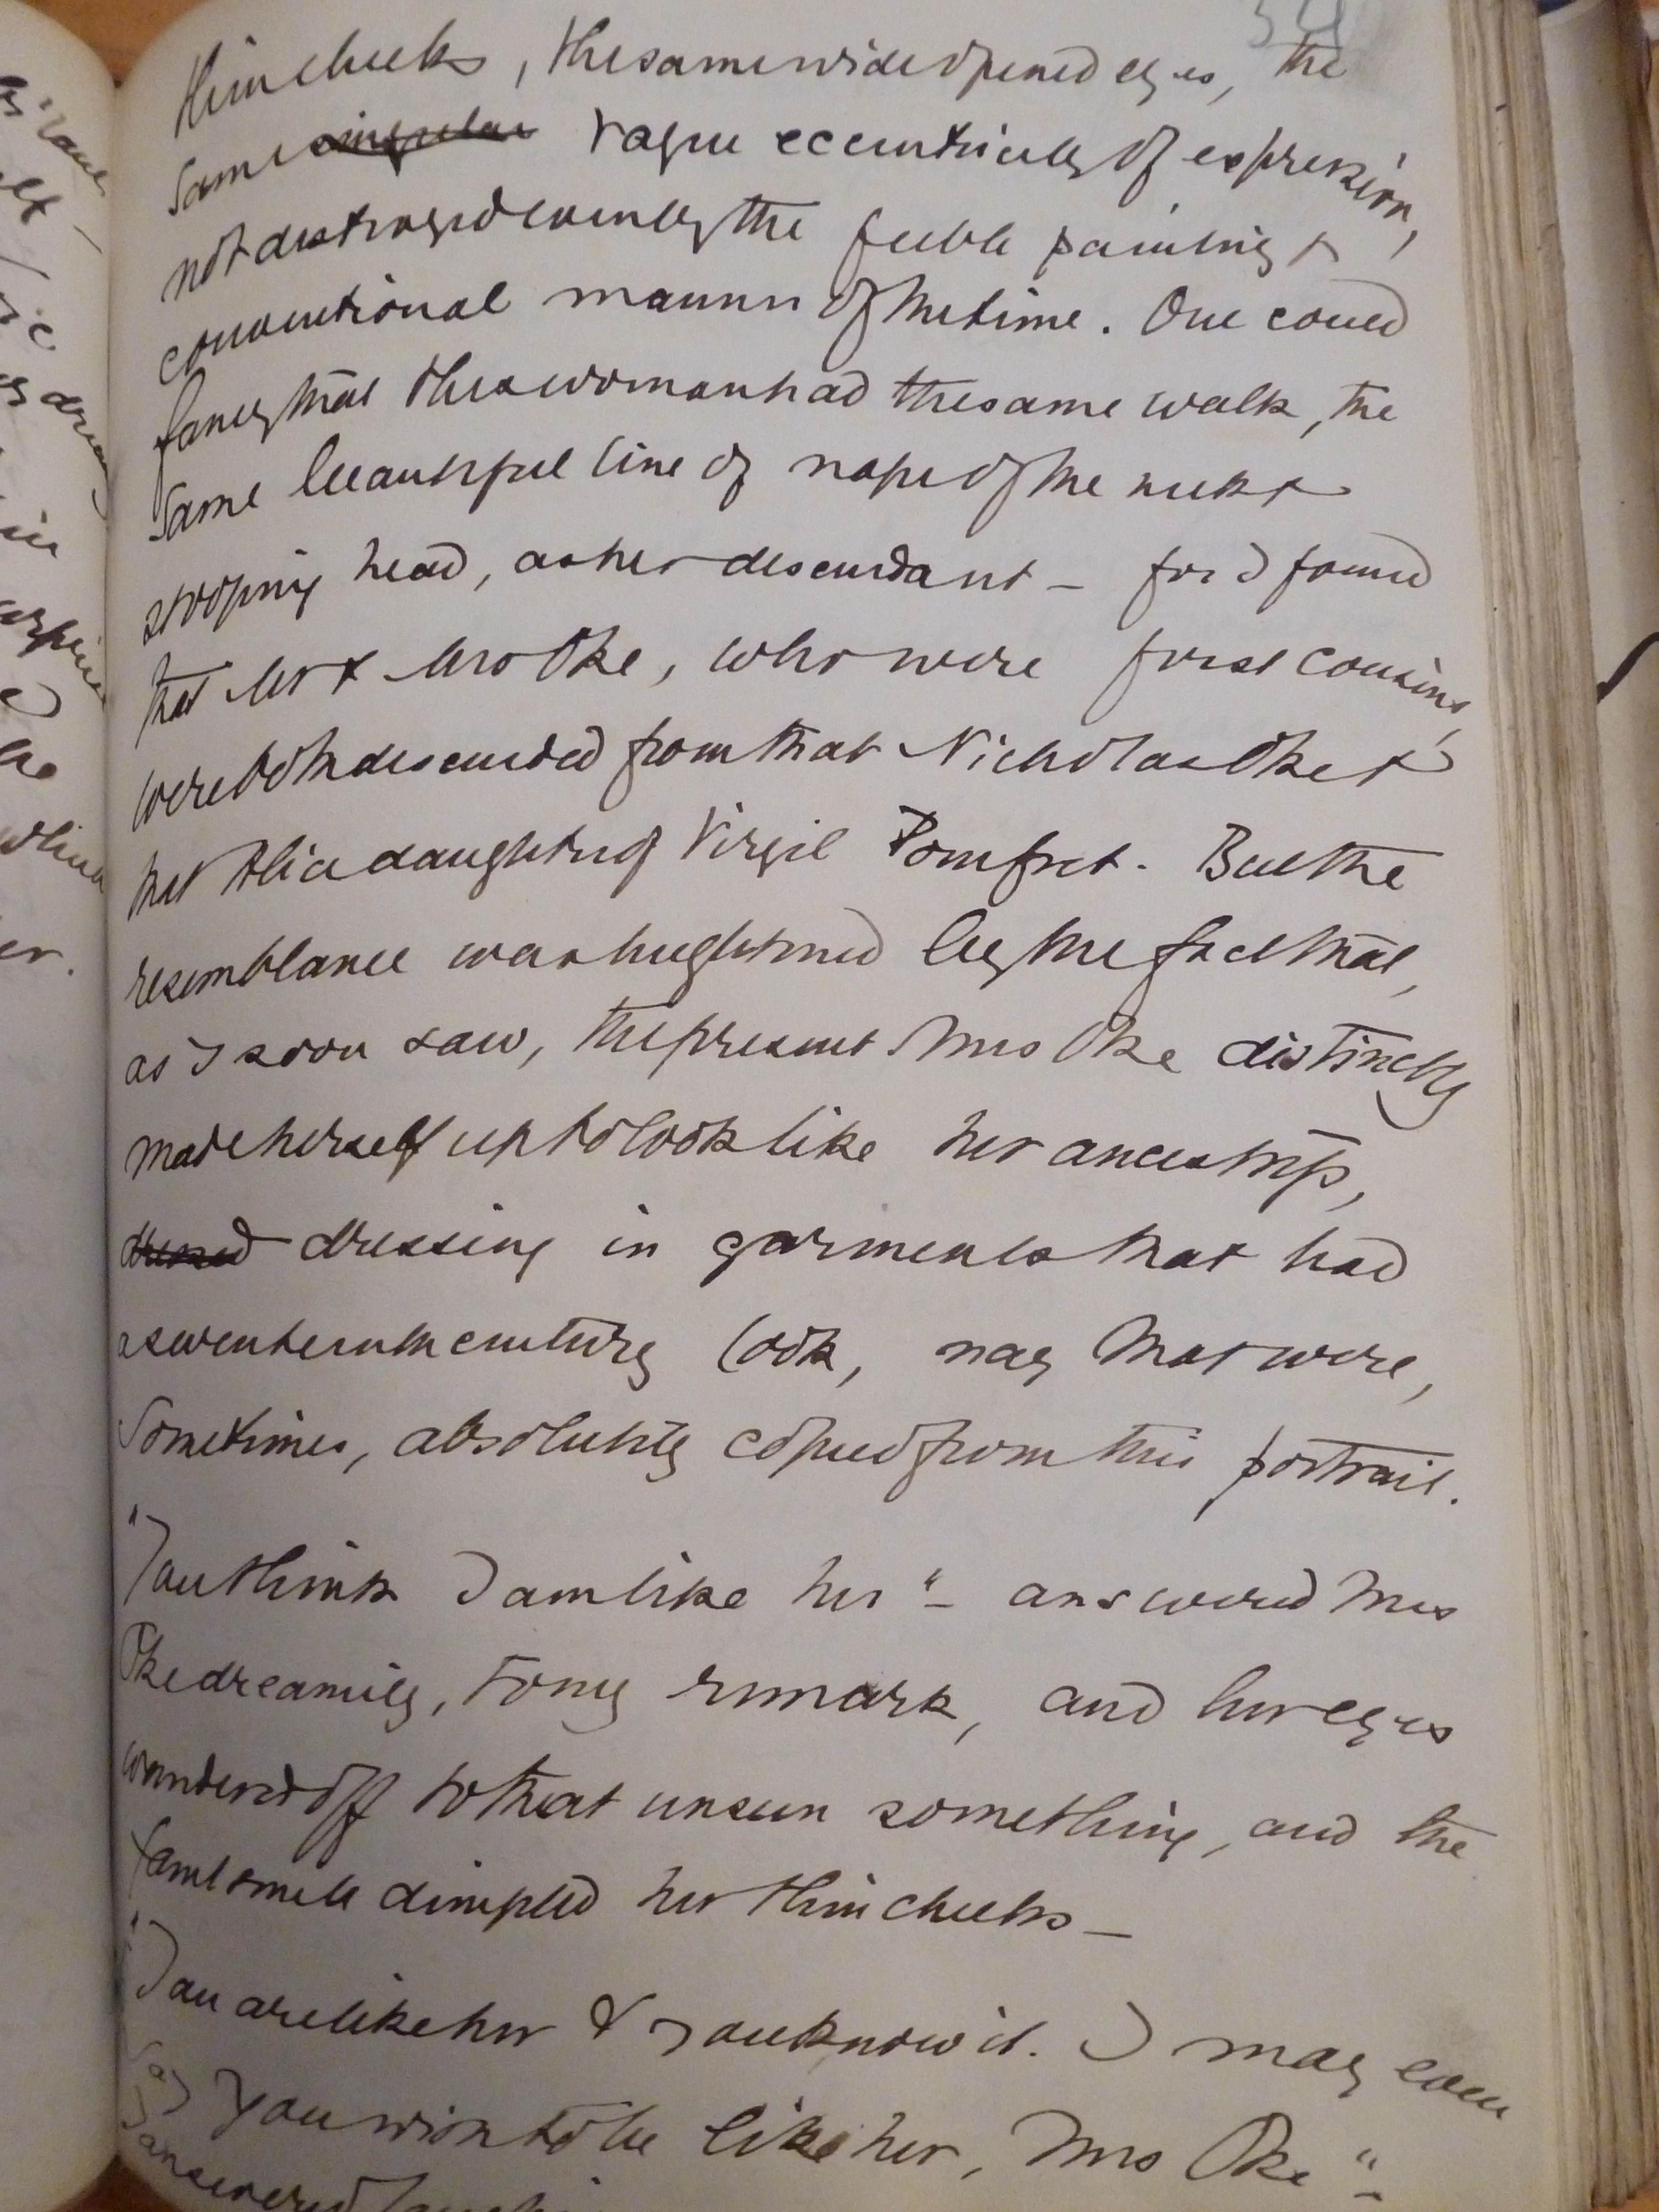 thin cheeks, the same wide opened eyes, the
same singular vague eccentricity of expression,
not destroyed even by the feeble painting &
conventional manner of the time. One could
fancy that this woman had the same walk, the
same beautiful line of nape of the neck &
stooping head, as her descendant – for I found
that Mr & Mrs Oke, who were first cousins,
were both descended from that Nicholas Oke &
that Alice daughter of Virgil Pomfret. But the
resemblance was heightened by the fact that,
as I soon saw, the present Mrs Oke distinctly
made herself up to look like her ancestress,
dressed dressing in garments that had
a seventeenth century look, nay that were,
sometimes, absolutely copied from this portrait.
"You think I am like her" – answered Mrs
Oke dreamily, to my remark, and her eyes
wandered off to that unseen something, and the
faint smile dimpled her thin cheeks –
"You are like her & you know it. I may even
say you wish to be like her, Mrs Oke" –
I answered laughing